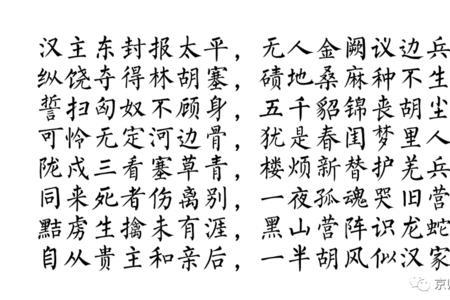 汉主东封报太平，无人金阙议边兵
纵饶夺得林胡塞，碛地桑麻种不生
誓扫匈奴不顾身，五千貂锦丧胡尘
可怜无定河边骨，犹是春闺梦里人
陇戍三看塞草青，楼烦新替护羌兵
同来死者伤离别，一夜孤魂哭旧营
黠虏生擒未有涯，黑山营阵识龙蛇
自从贵主和亲后，一半胡风似汉家
京